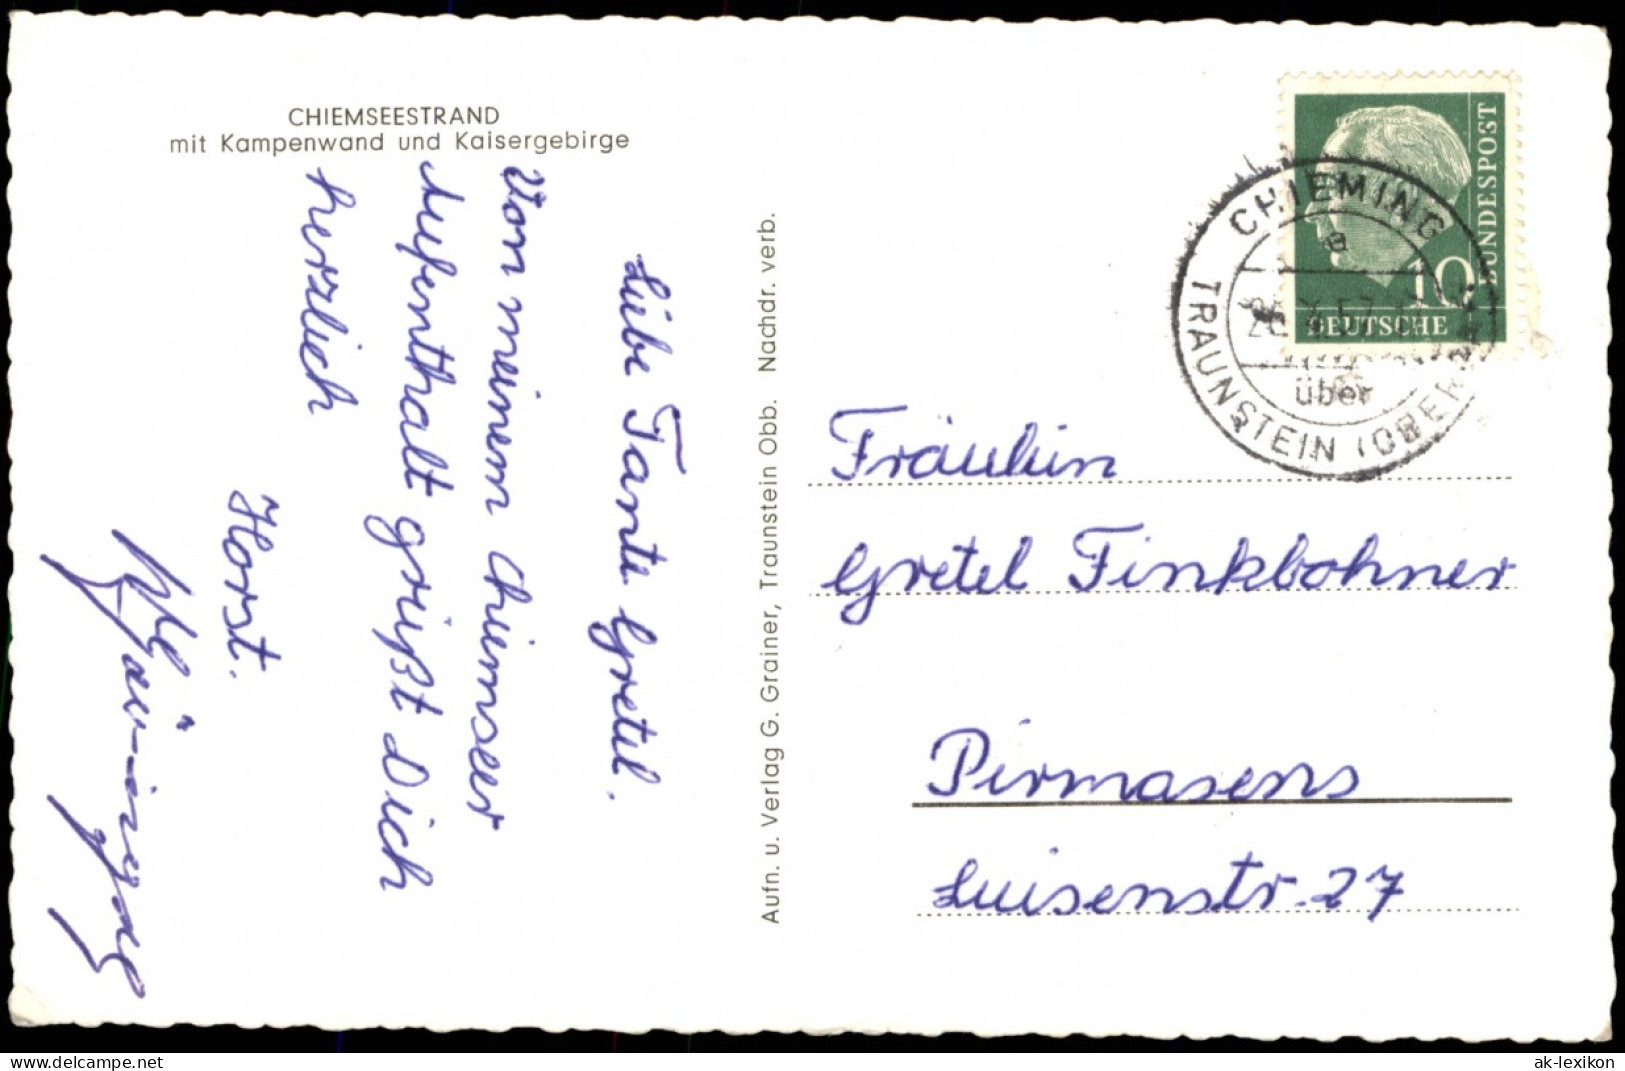 CHIEMSEESTRAND
mit Kampenwand und Kaisergebirge
Liebe Tante Gretel.
Von meinem Chiemseer
Aufenthalt grüßt Dich
herzlich
Horst.
Aufn. u. Verlag G. Grainer, Traunstein Obb. Nachdr. verb.
DEUTSCHE
BUNDESPOST
10
CHIEMING
a
über
TRAUNSTEIN (OBERBAY)
Fräulein
Gretel Finkbohner
Pirmasens
Luisenstr. 27
www.delcampe.net
ak-lexikon